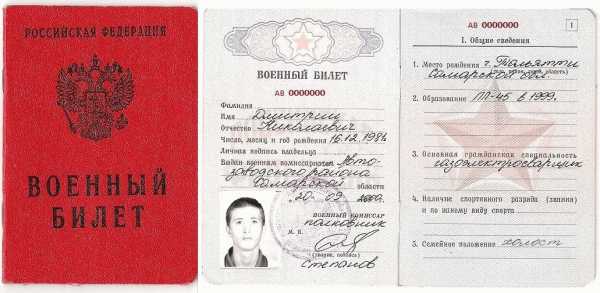 РОССИЙСКАЯ ФЕДЕРАЦИЯ
ВОЕННЫЙ
БИЛЕТ
ВОЕННЫЙ БИЛЕТ
АВ 0000000
Фамилия
Имя Дмитрий
Отчество Николаевич
Число, месяц и год рождения 16.12.1981
Личная подпись владельца
Выдан военным комиссариатом Авто-
заводского района
Самарской области
20 09
ВОЕННЫЙ КОМИССАР
полковник
М. П.
(звание, подпись)
Степанов
АВ 0000000
1
I. Общие сведения
1. Место рождения г. Тольятти
Самарской обл.
2. Образование ПЛ-45 в 1999г.
3. Основная гражданская специальность
газоэлектросварщик
4. Наличие спортивного разряда (звания)
и по какому виду спорта
5. Семейное положение холост